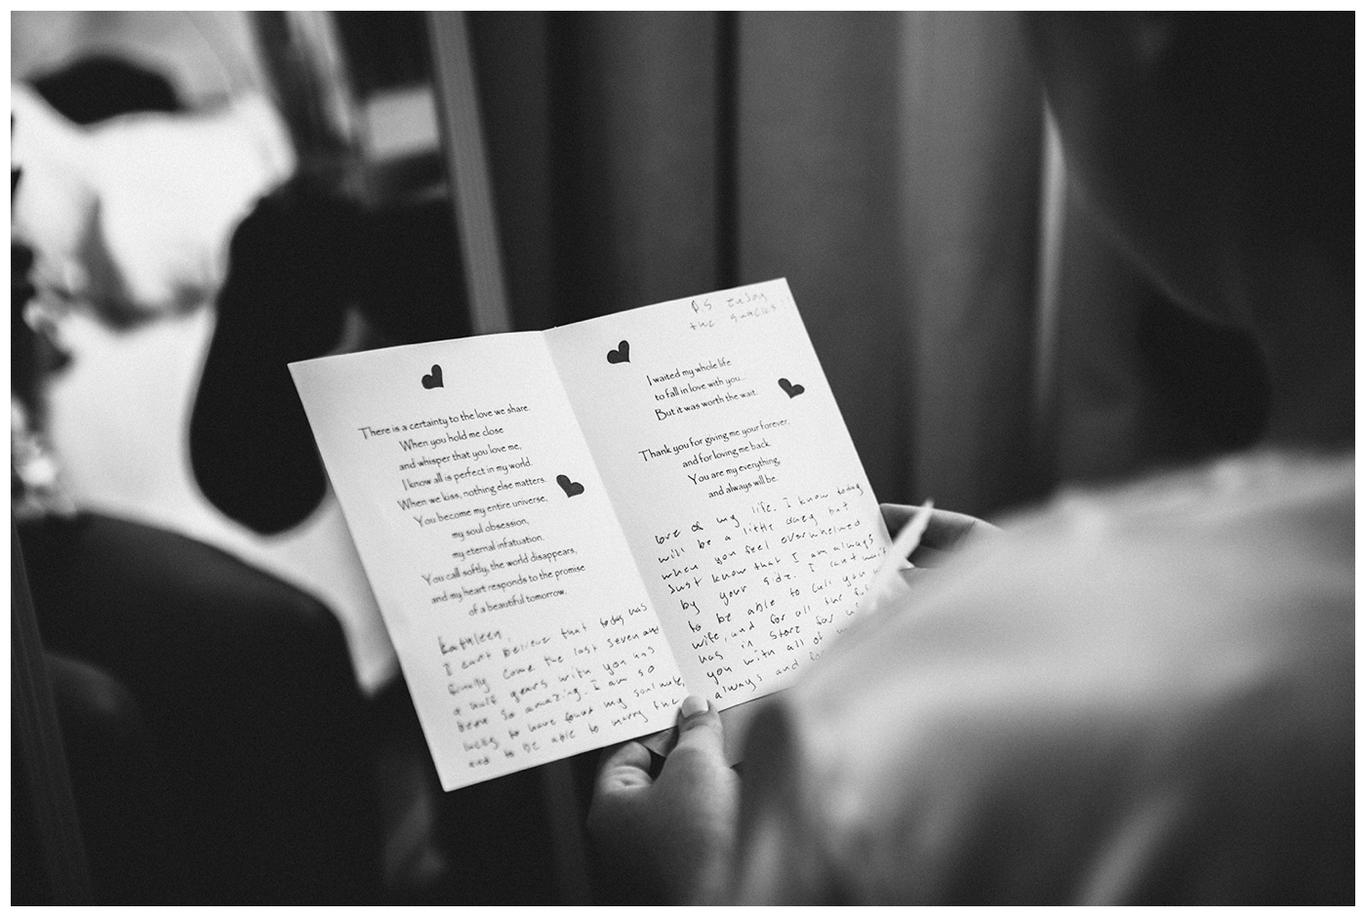 There is a certainty to the love we share.
When you hold me close
and whisper that you love me,
I know all is perfect in my world.
When we kiss, nothing else matters.
You become my entire universe,
my soul obsession,
my eternal infatuation.
You call softly, the world disappears,
and my heart responds to the promise
of a beautiful tomorrow.
Kathleen,
I can't believe that today has
finally come the last seven and
a half years with you has
been so amazing. I am so
lucky to have found my soulmate,
and to be able to marry the
P.S enjoy
the
I waited my whole life
to fall in love with you...
But it was worth the wait.
Thank you for giving me your forever,
and for loving me back.
You are my everything,
and always will be.
love of my life. I know today
will be a little crazy but
when you feel overwhelmed
Just know that I am always
by your side. I can't wait
to be able to call you
wife, and for all the
has in store for
you with all of
always and